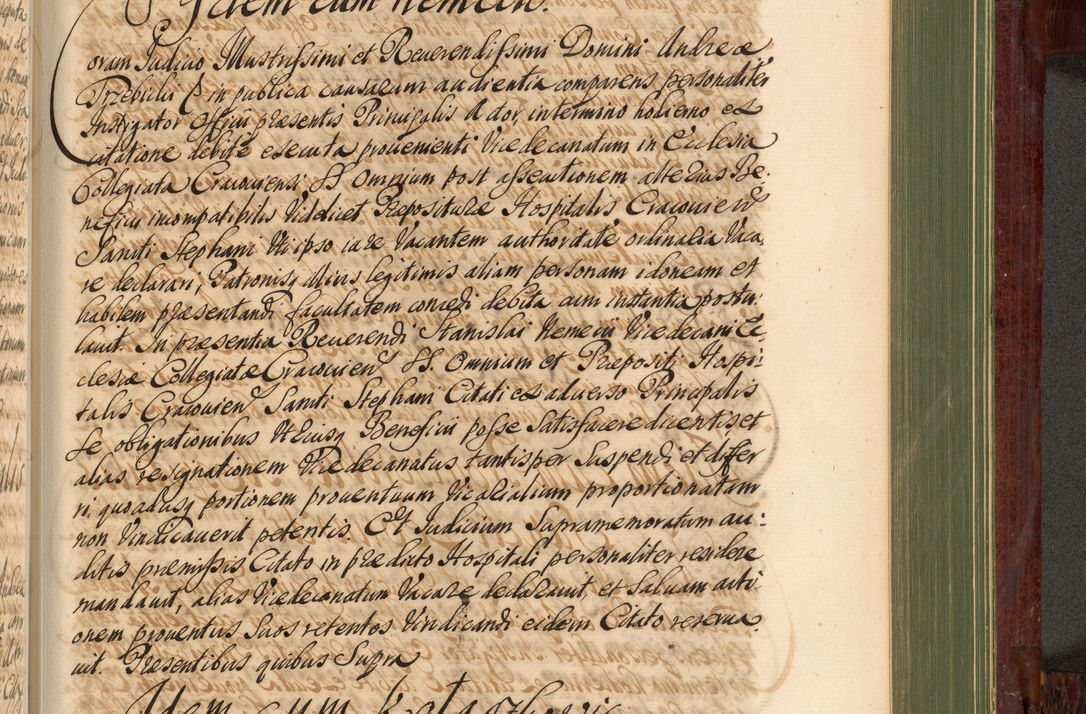 Idem cum Nemecic.
Coram Judicio Illustrissimi et Reverendissimi Domini Andreæ
Trzebicki & in publica causarum audientia comparens personaliter
Instigator Officii præsentis Principalis Ador, in termino hodierno ex
citatione debitè executa provenienti Vicedecanatum in Ecclesia
Collegiata Cracoviensi SS. Omnium post assecutionem alterius Be-
neficii incompatibilis Videlicet Præpositure Hospitalis Cracovien
Sancti Stephani Uti ipso iure Vacantem authoritate ordinaria Vaca,
re declarari, Patronisq illius legitimis aliam personam idoneam et
habilem præsentandi facultatem concedi debita cum instantia postu-
lavit. In præsentia Reverendi Stanislai Nemecii Vicedecani Ec-
clesiæ Collegiatæ Cracovien SS. Omnium et Præpositi Hospi-
talis Cracovien Sancti Stephani Citati ex adverso Principalis
se obligationibus Utriusq Beneficii posse Satisfacere dicentis et
alias resignationem Vicedecanatus tantisper Suspendi et differ
ri, quoadusq portionem proventuum Vicarialium proportionatam
non Vindicaverit petentis. Et Judicium Supramemoratum au-
ditis præmissis Citato in prædicto Hospitali personaliter residere
mandavit, alias Vicedecanatum Vacare declaravit, et Salvam acti-
onem proventus Suos retentos Vindicandi eidem Citato reserva-
vit. Præsentibus quibus Supra
Idem cum